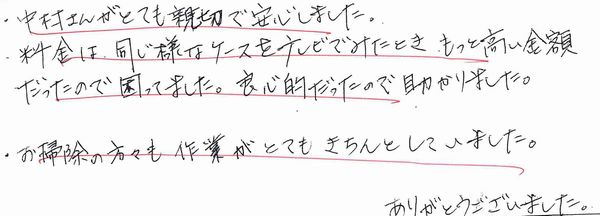 ・中村さんがとても親切で安心しました。
・料金は、同じ様なケースをテレビでみたとき もっと高い金額
だったので困ってました。良心的だったので助かりました。
・お掃除の方々も 作業が とても きちんとしていました。
ありがとうございました。